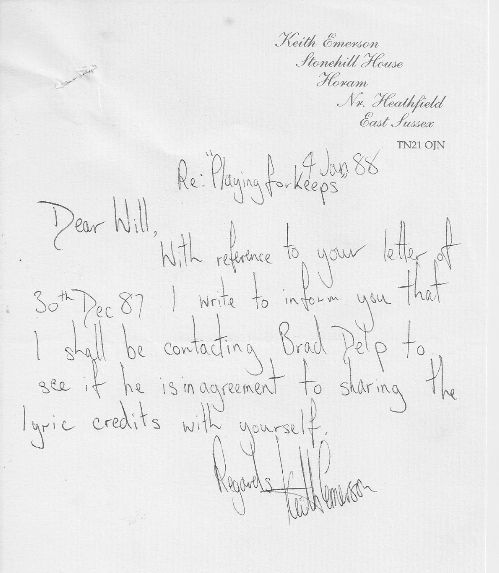 Keith Emerson
Stonehill House
Horam
Nr. Heathfield
East Sussex
TN21 OJN
4 Jan 88
Re: "Playing for Keeps"
Dear Will,
With reference to your letter of
30th Dec 87 I write to inform you that
I shall be contacting Brad Delp to
see if he is in agreement to sharing the
lyric credits with yourself.
Regards Keith Emerson